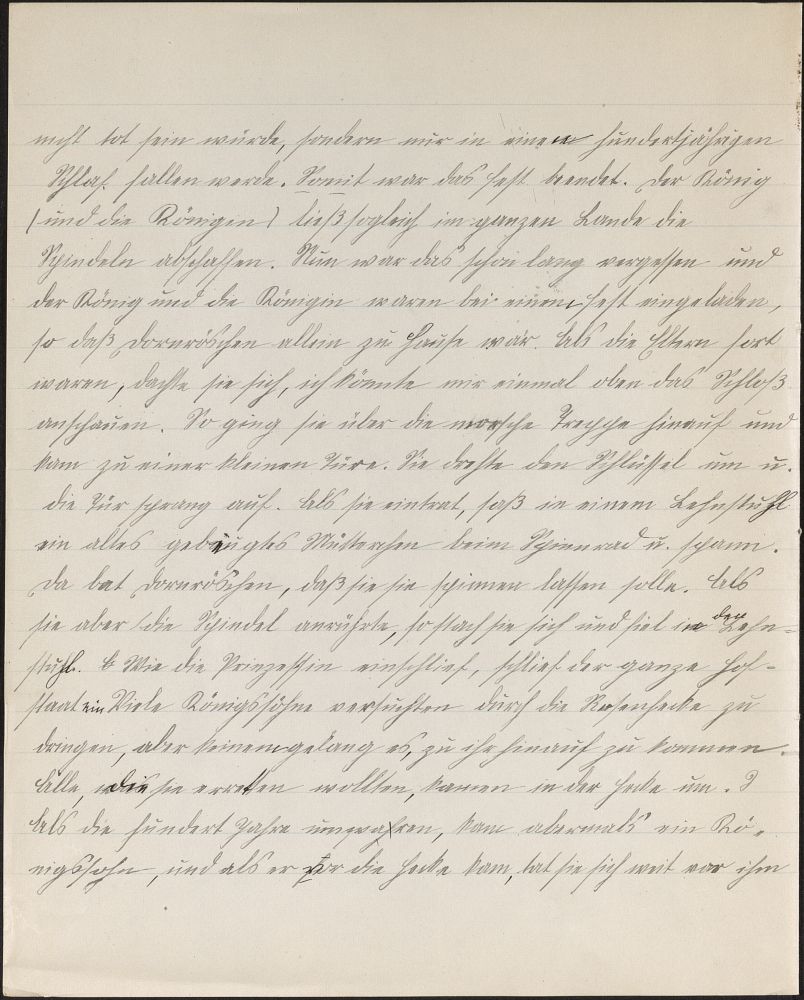 nicht tot sein würde, sondern nur in einen hundertjährigen
Schlaf fallen werde. Somit war das Fest beendet. Der König
(und die Königen) ließ sogleich im ganzen Lande die
Spindeln abschaffen. Nun war das schon lang vergessen und
der König und die Königin waren bei einem Fest eingeladen,
so daß Dornröschen allein zu Hause war. Als die Eltern fort
waren, dachte sie sich, ich könnte mir einmal oben das Schloß
anschauen. So ging sie über die morsche Treppe hinauf und
kam zu einer kleinen Türe. Sie drehte den Schlüssel um u.
die Tür sprang auf. Als sie eintrat, saß in einem Lehnstuhl
ein altes gebeugtes Mütterchen beim Spinnrad u. spann.
Da bat Dornröschen, daß sie sie spinnen lassen solle. Als
sie aber die Spindel anrührte, so stach sie sich und fiel in den Lehn-
stuhl. Wie die Prinzessin einschlief, schlief der ganze Hof-
staat ein Viele Königssöhne versuchten durch die Rosenhecke zu
dringen, aber keinem gelang es, zu ihr hinauf zu kommen.
Alle, die sie erretten wollten, kamen in der Hecke um.
Als die hundert Jahre um waren, kam abermals ein Kö-
nigssohn, und als er vor die Hecke kam, tat sie sich weit vor ihm